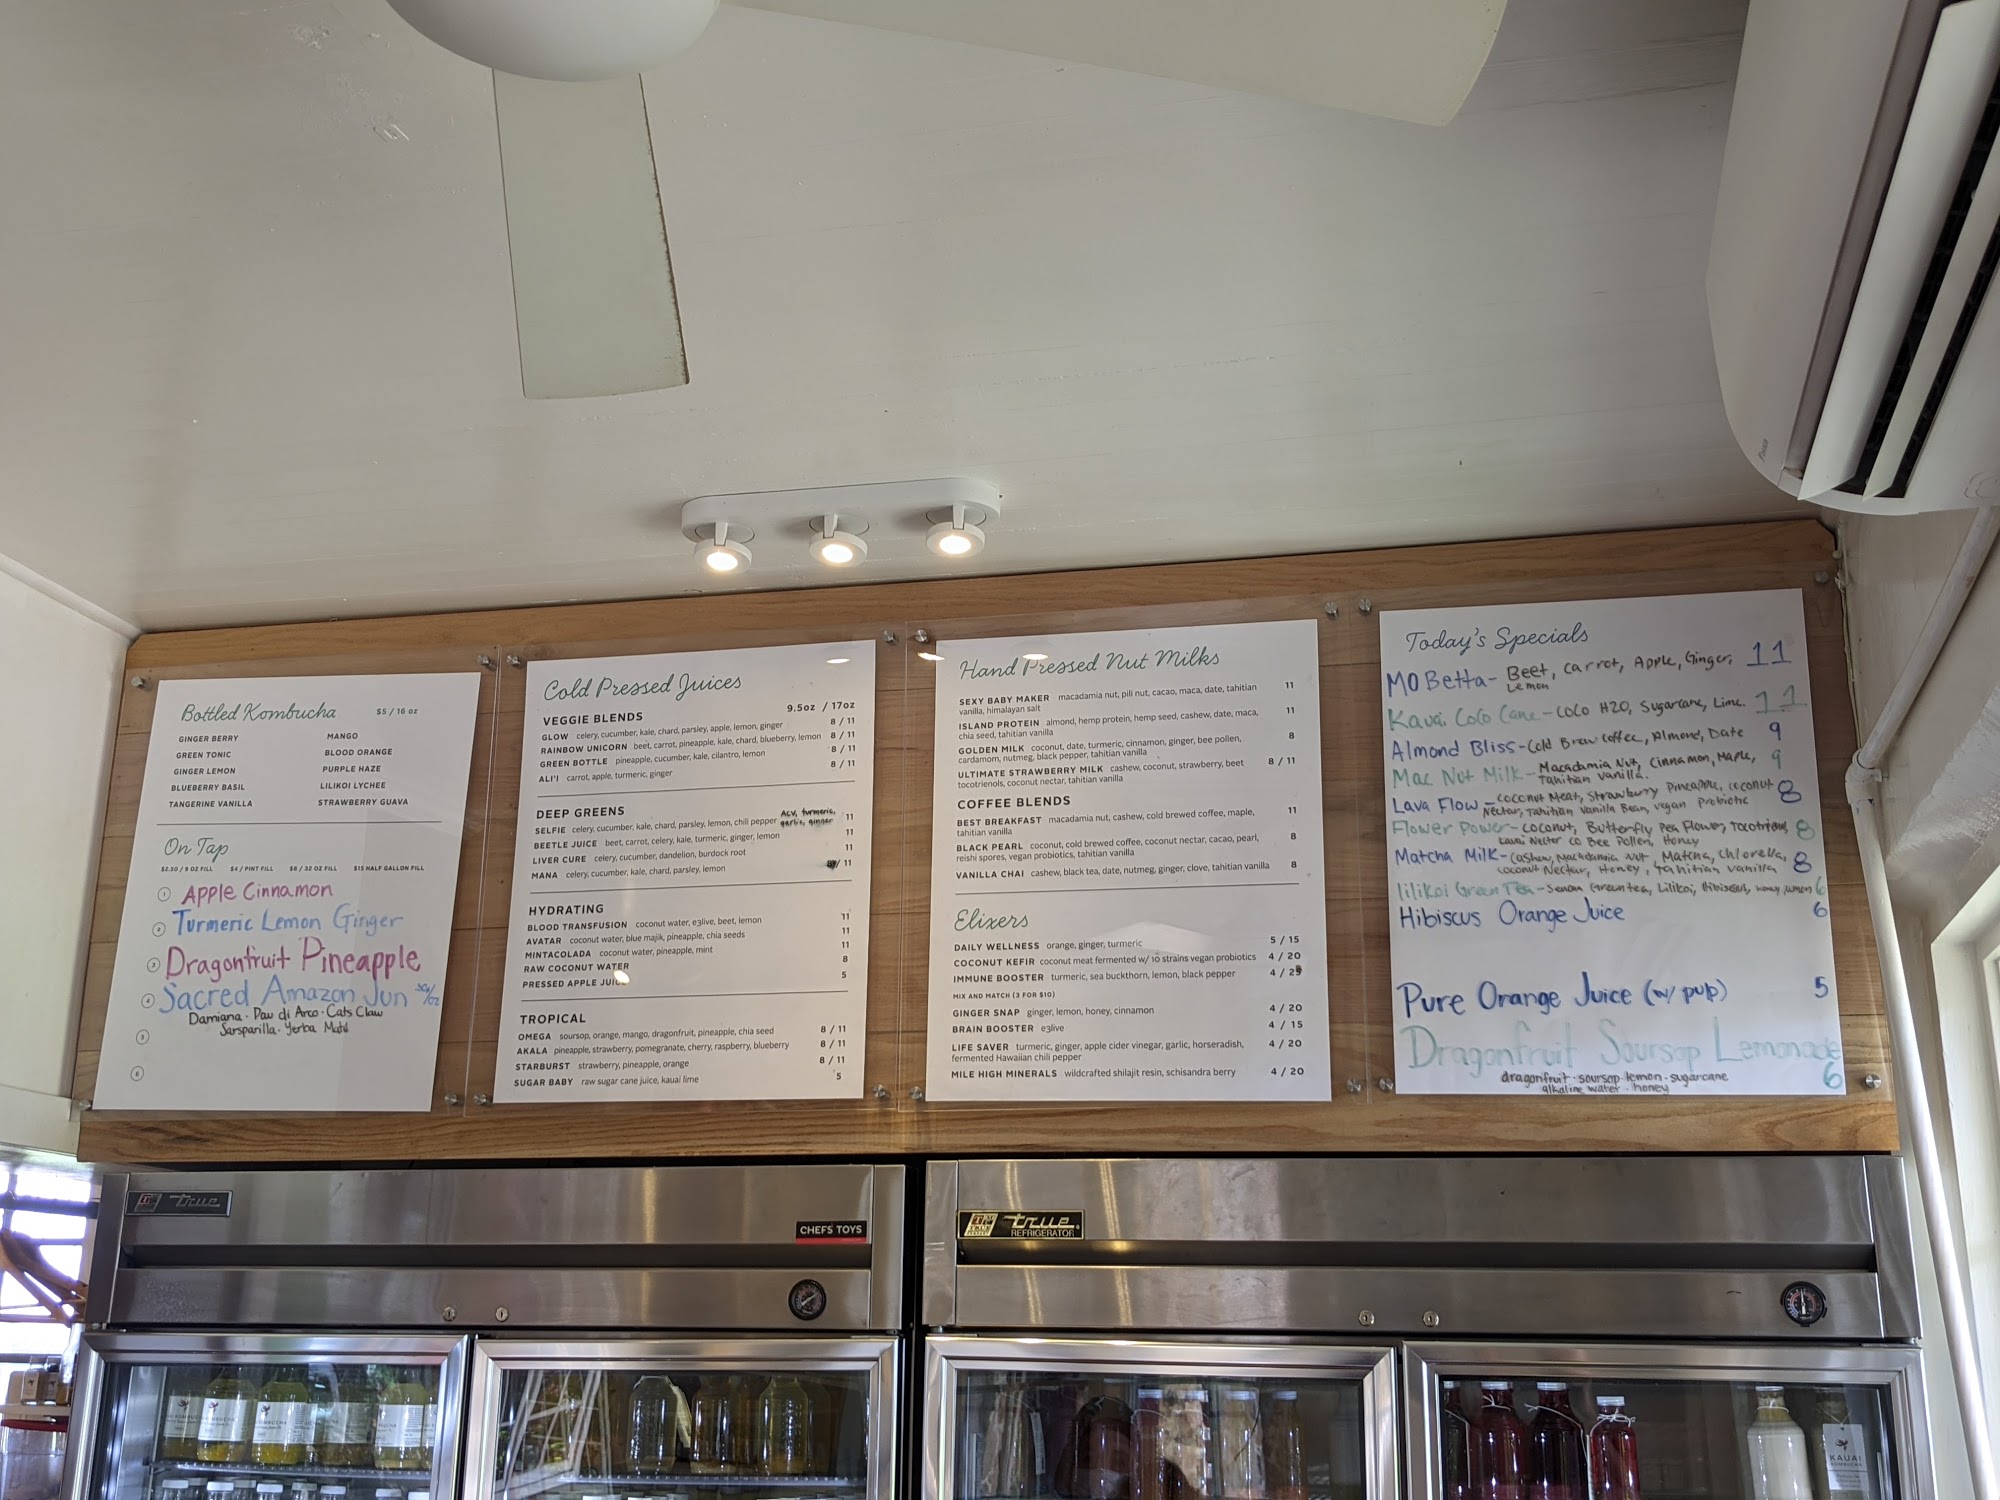 Bottled Kombucha $5 / 16 oz
GINGER BERRY MANGO
GREEN TONIC BLOOD ORANGE
GINGER LEMON PURPLE HAZE
BLUEBERRY BASIL LILIKOI LYCHEE
TANGERINE VANILLA STRAWBERRY GUAVA
On Tap
$2.50 / 9 OZ FILL $4 / PINT FILL $8 / 32 OZ FILL $15 HALF GALLON FILL
1 Apple Cinnamon
2 Turmeric Lemon Ginger
3 Dragonfruit Pineapple
4 Sacred Amazon Jun
Damiana · Pau di Arco · Cats Claw
Sarsparilla · Yerba Maté
5
6
Cold Pressed Juices
9.5oz / 17oz
VEGGIE BLENDS
GLOW celery, cucumber, kale, chard, parsley, apple, lemon, ginger 8 / 11
RAINBOW UNICORN beet, carrot, pineapple, kale, chard, blueberry, lemon 8 / 11
GREEN BOTTLE pineapple, cucumber, kale, cilantro, lemon 8 / 11
ALI'I carrot, apple, turmeric, ginger 8 / 11
DEEP GREENS
SELFIE celery, cucumber, kale, chard, parsley, lemon, chili pepper ACV, turmeric, garlic, ginger 11
BEETLE JUICE beet, carrot, celery, kale, turmeric, ginger, lemon 11
LIVER CURE celery, cucumber, dandelion, burdock root 11
MANA celery, cucumber, kale, chard, parsley, lemon / 11
HYDRATING
BLOOD TRANSFUSION coconut water, e3live, beet, lemon 11
AVATAR coconut water, blue majik, pineapple, chia seeds 11
MINTACOLADA coconut water, pineapple, mint 11
RAW COCONUT WATER 8
PRESSED APPLE JUICE 5
TROPICAL
OMEGA soursop, orange, mango, dragonfruit, pineapple, chia seed 8 / 11
AKALA pineapple, strawberry, pomegranate, cherry, raspberry, blueberry 8 / 11
STARBURST strawberry, pineapple, orange 8 / 11
SUGAR BABY raw sugar cane juice, kauai lime 5
Hand Pressed Nut Milks
SEXY BABY MAKER macadamia nut, pili nut, cacao, maca, date, tahitian 11
vanilla, himalayan salt
ISLAND PROTEIN almond, hemp protein, hemp seed, cashew, date, maca, 11
chia seed, tahitian vanilla
GOLDEN MILK coconut, date, turmeric, cinnamon, ginger, bee pollen, 8
cardamom, nutmeg, black pepper, tahitian vanilla
ULTIMATE STRAWBERRY MILK cashew, coconut, strawberry, beet 8 / 11
tocotrienols, coconut nectar, tahitian vanilla
COFFEE BLENDS
BEST BREAKFAST macadamia nut, cashew, cold brewed coffee, maple, 11
tahitian vanilla
BLACK PEARL coconut, cold brewed coffee, coconut nectar, cacao, pearl, 8
reishi spores, vegan probiotics, tahitian vanilla
VANILLA CHAI cashew, black tea, date, nutmeg, ginger, clove, tahitian vanilla 8
Elixers
DAILY WELLNESS orange, ginger, turmeric 5 / 15
COCONUT KEFIR coconut meat fermented w/ 10 strains vegan probiotics 4 / 20
IMMUNE BOOSTER turmeric, sea buckthorn, lemon, black pepper 4 /
MIX AND MATCH (3 FOR $10)
GINGER SNAP ginger, lemon, honey, cinnamon 4 / 20
BRAIN BOOSTER e3live 4 / 15
LIFE SAVER turmeric, ginger, apple cider vinegar, garlic, horseradish, 4 / 20
fermented Hawaiian chili pepper
MILE HIGH MINERALS wildcrafted shilajit resin, schisandra berry 4 / 20
Today's Specials
MO Betta - Beet, Carrot, Apple, Ginger, 11
Lemon
Kauai CoCo Cane - COCO H2O, Sugarcane, Lime. 11
Almond Bliss - Cold Brew Coffee, Almond, Date 9
Mac Nut Milk - Macadamia Nut, Cinnamon, Maple, 9
Tahitian Vanilla.
Lava Flow - Coconut Meat, Strawbury Pineapple, coconut 8
Nectar, Tahitian Vanilla Bean, vegan Probiotic
Flower Power - Coconut, Butterfly Pea Flower, Tocotrienols 8
Kauai Nectar Co Bee Pollen, Honey
Matcha Milk - Cashew, Macadamia Nut, Matcha, Chlorella, 8
Coconut Nectar, Honey, Tahitian vanilla
lilikoi Green Tea - Sencha Green tea, Lilikoi, Hibiscus, honey, lemon 6
Hibiscus Orange Juice 6
Pure Orange Juice (w/ pulp) 5
Dragonfruit Soursop Lemonade
dragonfruit · soursop · lemon · sugarcane 6
alkaline water · honey
true
CHEFS' TOYS
true
REFRIGERATOR
KAUAI
KOMBUCHA